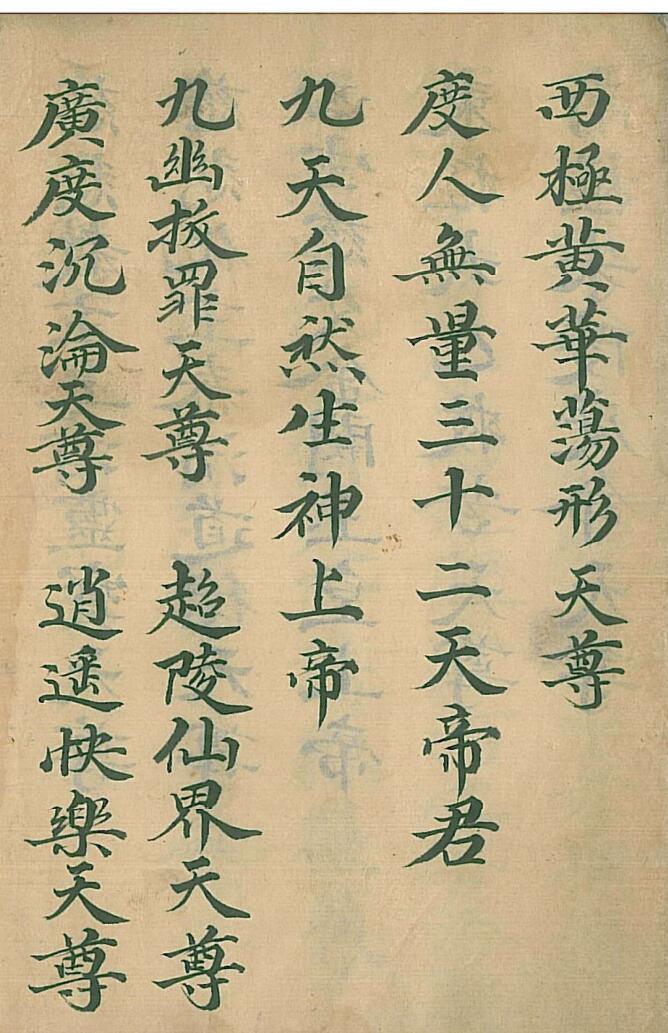 西極黄華蕩形天尊
度人無量三十二天帝君
九天自然生神上帝
九幽拔罪天尊 超陵仙界天尊
廣度沉淪天尊 逍遥快樂天尊